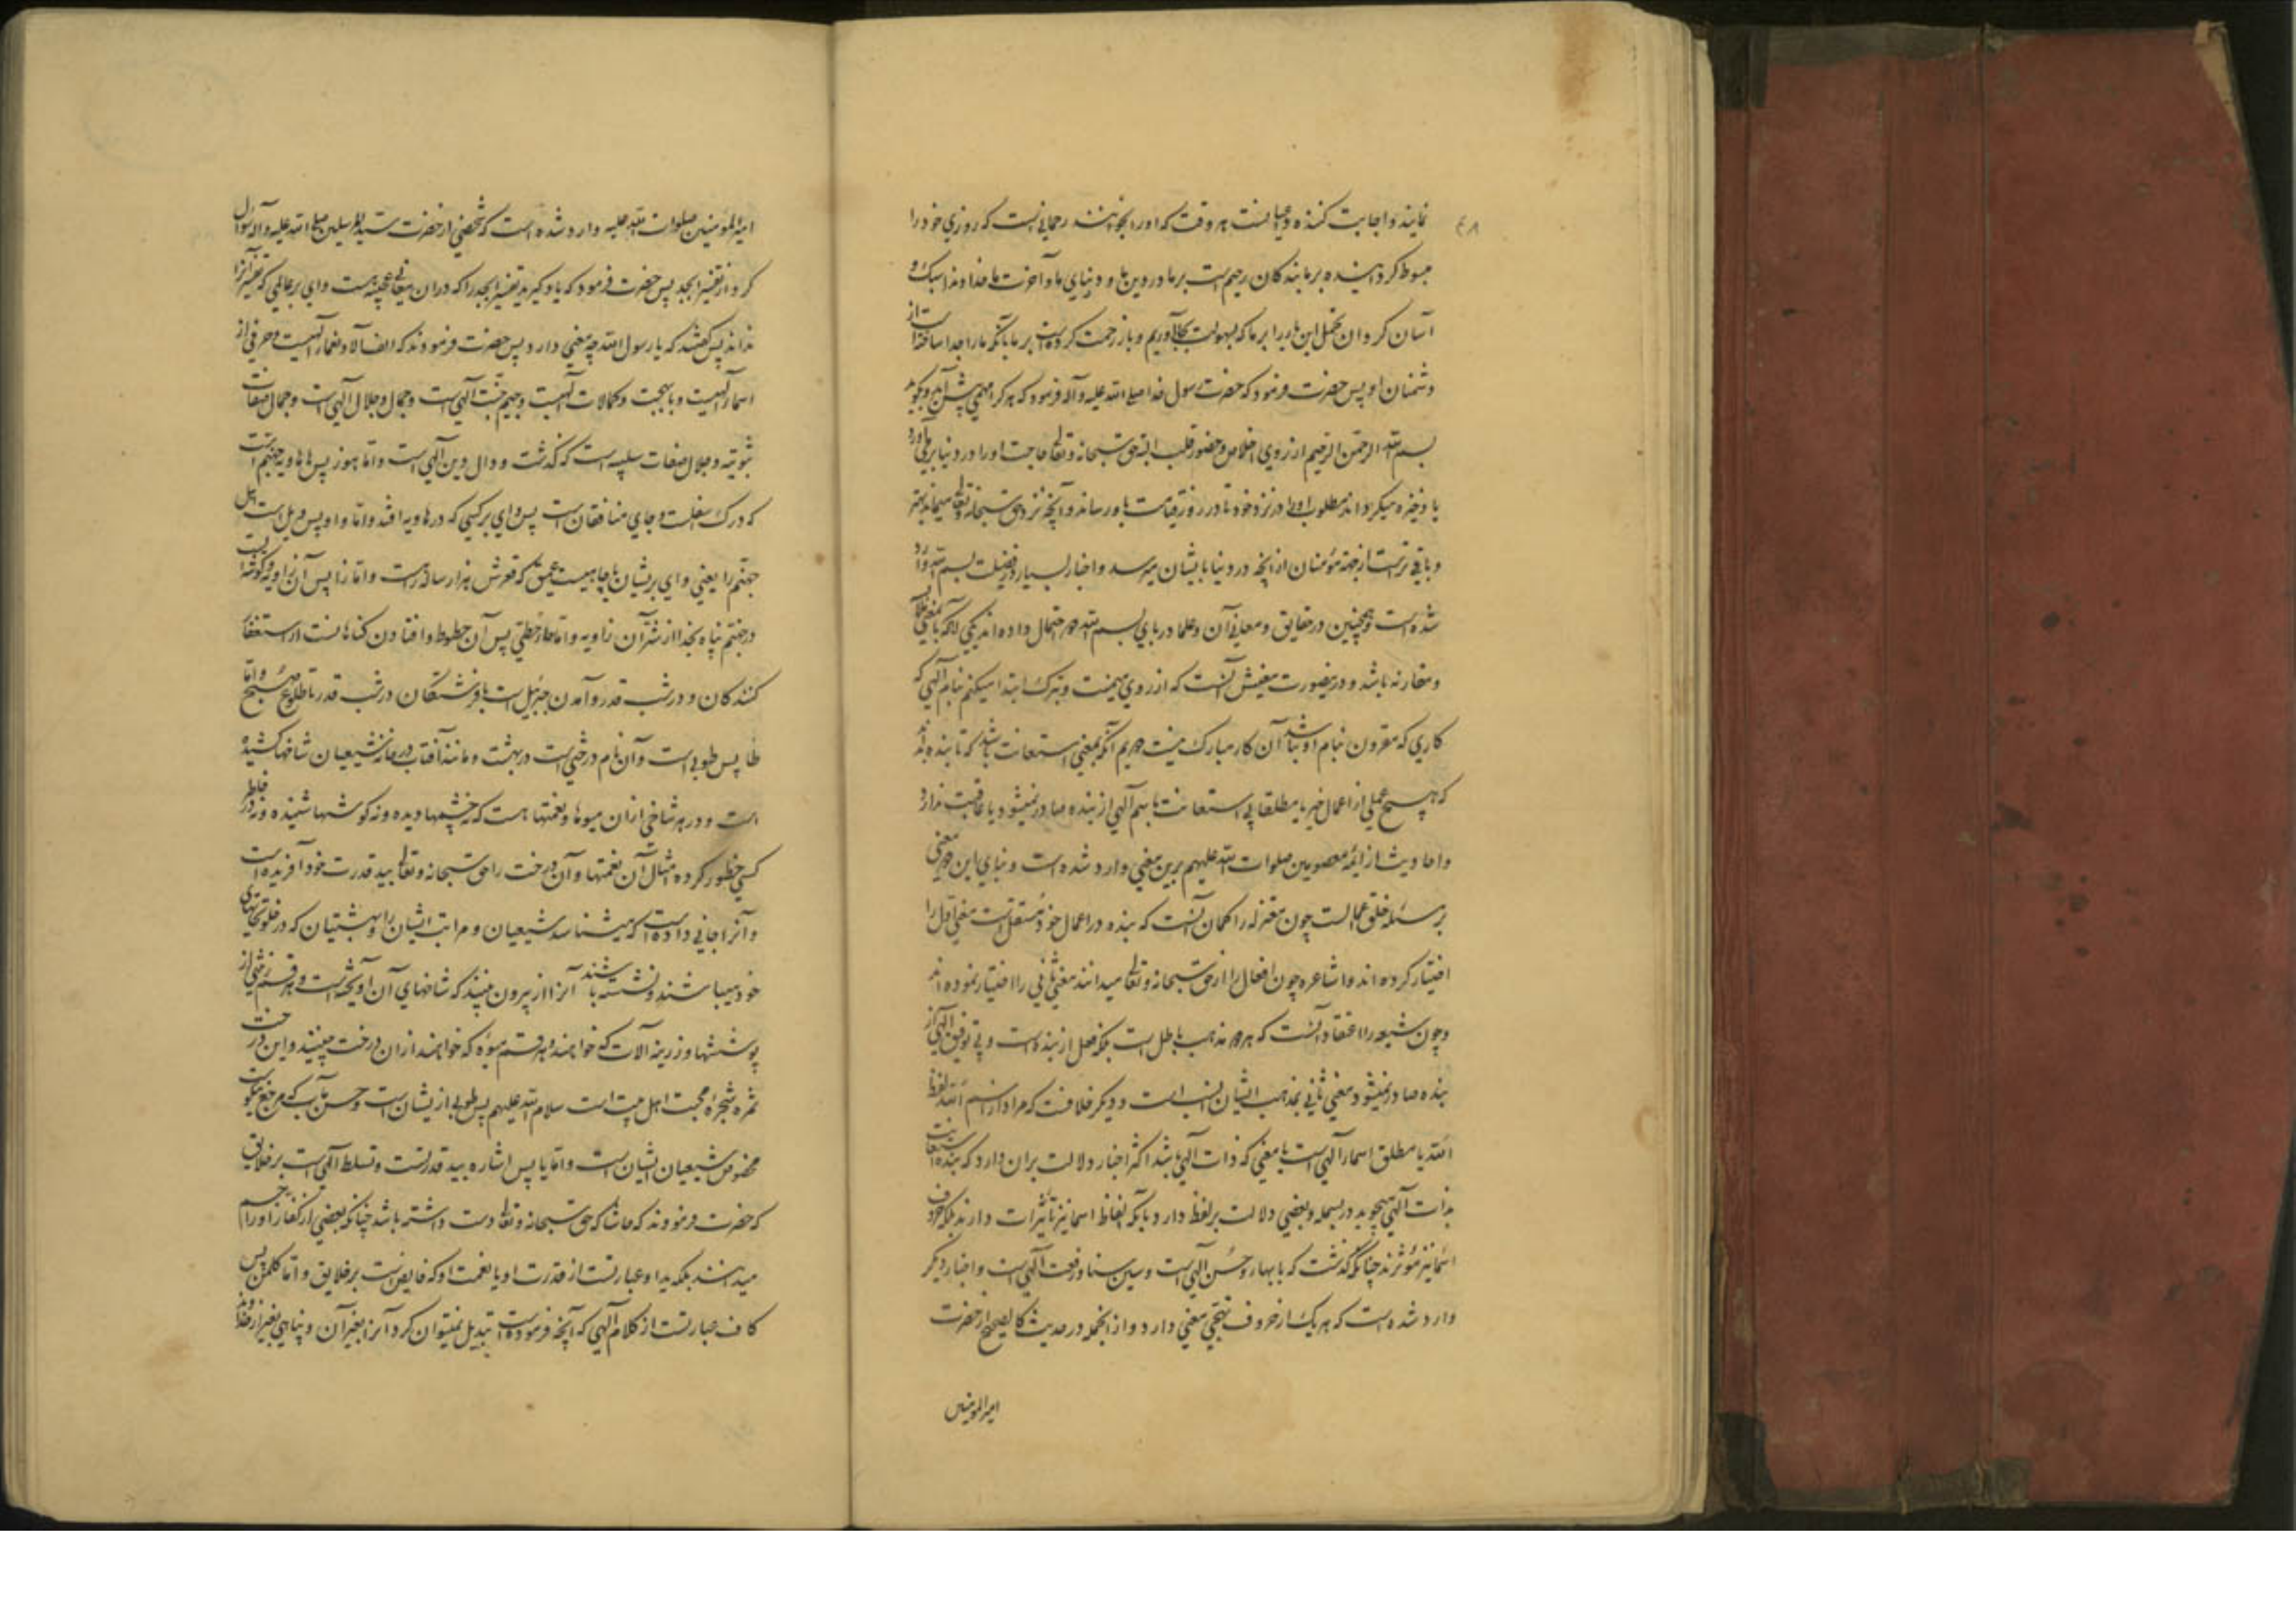 ۴۸
نمایند و اجابت کننده دعاهاست هر وقت که او را بخوانند رحمانیست که روزی خود را
مبسوط گردانیده بر ما بندگان رحیم است بر ما در دین ما و دنیای ما و آخرت ما خداوندا سبک و
آسان کردان تحمل این بار را بر ما که بسهولت بجا آوریم و باز رحمت کرده است بر ما بآنکه ما را جدا ساخته است از
دشمنان او پس حضرت فرمود که حضرت رسول خدا صلی الله علیه و آله فرمود که هر که را مهمی پیش آید و بگوید
بسم الله الرحمن الرحیم از روی اخلاص و حضور قلب البته حق سبحانه و تعالی حاجت او را در دنیا بر می آورد
یا ذخیره میگرداند مطلوب او را در نزد خود تا در روز قیامت باو رساند و آنچه نزد حق سبحانه و تعالی میماند بهتر
و باقی ترست از جهة مؤمنان از آنچه در دنیا بایشان میرسد و اخبار بسیار در فضیلت بسم الله وارد
شده است و همچنین در حقایق و معانی آن و علما در بای بسم الله دو احتمال داده اند یکی آنکه با بمعنی ملابست
و مقارنه باشد و درینصورت معنیش آنست که از روی میمنت و تبرک ابتدا میکنم بنام الهی که
کاری که مقرون بنام او نباشد آن کار مبارک نیست دویم آنکه بمعنی استعانت باشد که تا بنده بداند
که هیچ عملی از اعمال خیر یا مطلقا بی استعانت باسم الهی از بنده صادر نمیشود یا عاقبت ندارد
و احادیث از ائمه معصومین صلوات الله علیهم برین معنی وارد شده است و بنای این دو معنی
بر مسئله خلق اعمالست چون معتزله را گمان آنست که بنده در اعمال خود مستقل است معنی اول را
اختیار کرده اند و اشاعره چون افعال را از حق سبحانه و تعالی میدانند معنی ثانی را اختیار نموده اند
و چون شیعه را اعتقاد آنست که هر دو مذهب باطل است بلکه فعل از بنده است و بی توفیق الهی از
بنده صادر نمیشود معنی ثانی بمذهب ایشان انسب است و دیگر خلافست که مراد از اسم الله لفظ
الله یا مطلق اسماء الهی است یا معنی که ذات الهی باشد اکثر اخبار دلالت بر آن دارد که بنده استعانت
بذات الهی میجوید در بسمله و بعضی دلالت بر لفظ دارد بآنکه الفاظ اسما نیز تأثیرات دارند بلکه حروف
اسما نیز مؤثرند چنانکه گذشت که با بهاء و حسن الهی است و سین سنا و رفعت الهی است و اخبار دیگر
وارد شده است که هر یک از حروف تهجی معنی دارد و از آنجمله در حدیث کالصحیح از حضرت
امیر المومنین
امیر المومنین صلوات الله علیه وارد شده است که شخصی از حضرت سید المرسلین صلی الله علیه و آله سوال
کرد از تفسیر ابجد پس حضرت فرمود که یاد گیرید تفسیر ابجد را که در آن معانی عجیبه است و وای بر عالمی که تفسیر آنرا
نداند پس گفتند که یا رسول الله چه معنی دارد پس حضرت فرمودند که الف آلاء و نعماء الهیست و حرفی از
اسماء الهیست و با بهجت و کمالات الهیست و جیم جنت الهی است و جمال و جلال الهی است و جمال صفات
ثبوتیه و جلال صفات سلبیه است که گذشت و دال دین الهی است و اما هوز پس ها هاویه جهنم است
که درک اسفلست و جای منافقان است پس وای بر کسی که در هاویه افتد و اما واو پس ویل است اهل
جهنم را یعنی وای بریشان یا چاهیست عمیق که قعرش هزار ساله راهست و اما زا پس آن زاویه و گوشه ایست
در جهنم پناه بخدا از شر آن زاویه و اما حا حطی پس آن حطوط و افتادن گناهانست از استغفار
کنندگان و در شب قدر و آمدن جبرئیل است با فرشتگان در شب قدر تا طلوع صبح و اما
طا پس طوبی است و آن نام درختی است در بهشت و مانند آفتاب در خانه شیعیان شاخها کشیده
است و در هر شاخی از آن میوها و نعمتها هست که نه چشمها دیده و نه گوشها شنیده و نه در خاطر
کسی خطور کرده امثال آن نعمتها و آن درخت را حق سبحانه و تعالی بید قدرت خود آفریده است
و آنرا جانی داده است که میشناسد شیعیان و مراتب ایشان را و بهشتیان که در خلوتخانهای
خود میباشند و نشسته باشند آنرا از بیرون میبینند که شاخهای آن آویخته است و هر قسم رختی از
پوششها و زرینه آلات که خواهند و هر قسم میوه که خواهند از آن درخت میچینند و این درخت
ثمره شجره محبت اهل بیت است سلام الله علیهم پس طوبی از یشان است و حسن مآب که مرجع نیکوست
مخصوص شیعیان ایشان است و اما یا پس اشاره بید قدرتست و تسلط الهی است بر خلایق
که حضرت فرمودند که حاشا که حق سبحانه و تعالی دست داشته باشد چنانکه بعضی از کفار او را جسم
میدانند بلکه ید او عبارتست از قدرت او یا نعمت او که فایض است بر خلایق و اما کلمن پس
کاف عبارتست از کلام الهی که آنچه فرموده است تبدیل نمیتوان کرد آنرا بغیر آن و پناهی بغیر از خداوند